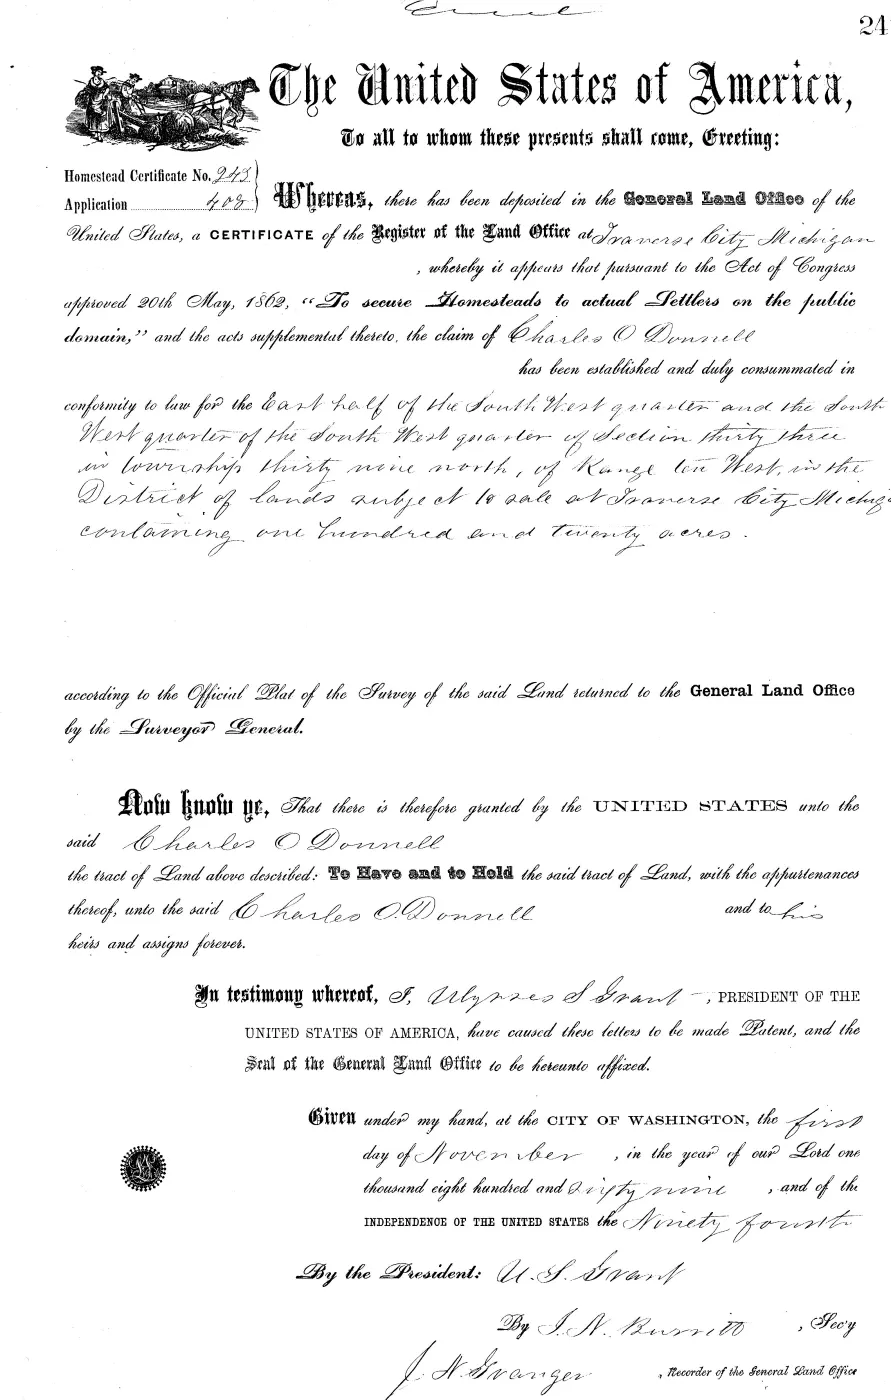 24
The United States of America,
To all to whom these presents shall come, Greeting:
Homestead Certificate No. 243
Application 408
Whereas, there has been deposited in the General Land Office of the
United States, a CERTIFICATE of the Register of the Land Office at Traverse City Michigan
, whereby it appears that pursuant to the Act of Congress
approved 20th May, 1862, “To secure Homesteads to actual Settlers on the public
domain,” and the acts supplemental thereto, the claim of Charles O Donnell
has been established and duly consummated in
conformity to law for the East half of the South West quarter and the South
West quarter of the South West quarter of Section thirty three
in township thirty nine north, of Range ten West, in the
District of lands subject to sale at Traverse City Michig
containing one hundred and twenty acres.
according to the Official Plat of the Survey of the said Land returned to the General Land Office
by the Surveyor General.
Now know ye, That there is therefore granted by the UNITED STATES unto the
said Charles O Donnell
the tract of Land above described: To Have and to Hold the said tract of Land, with the appurtenances
thereof, unto the said Charles O. Donnell and to his
heirs and assigns forever.
In testimony whereof, I, Ulysses S Grant, PRESIDENT OF THE
UNITED STATES OF AMERICA, have caused these letters to be made Patent, and the
Seal of the General Land Office to be hereunto affixed.
Given under my hand, at the CITY OF WASHINGTON, the first
day of November, in the year of our Lord one
thousand eight hundred and sixty nine, and of the
INDEPENDENCE OF THE UNITED STATES the Ninety fourth
By the President: U. S. Grant
By J. N. Burritt, Sec'y
J. N. Granger, Recorder of the General Land Office